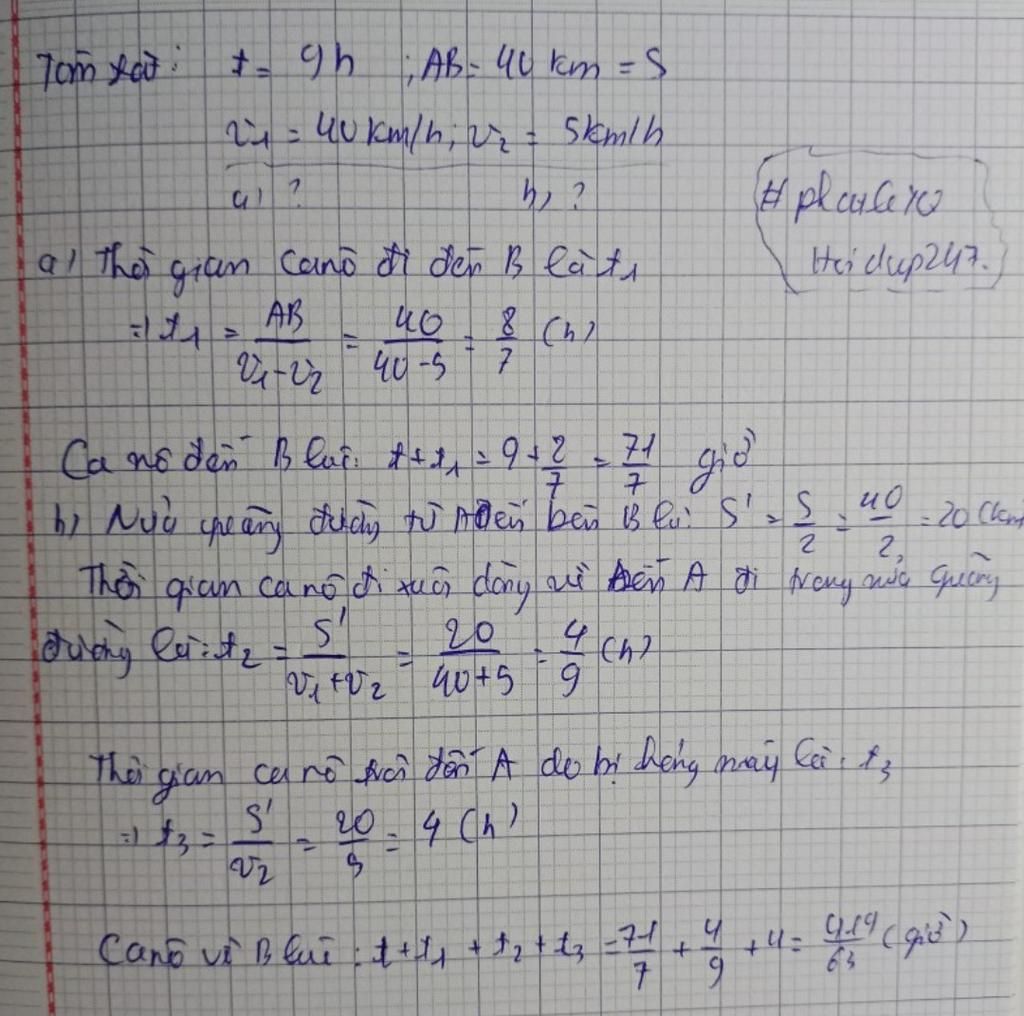 Tóm tắt: t = 9h ; AB = 40 km = S
v₁ = 40 km/h; v₂ = 5km/h
a) ? b) ?
Hoidap247.
a) Thời gian canô đi đến B là t₁
=> t₁ = AB/(v₁-v₂) = 40/(40-5) = 8/7 (h)
Ca nô đến B lúc: t+t₁ = 9+2/7 = 71/7 giờ
b) Nửa quãng đường từ A đến bến B là: S' = S/2 = 40/2 = 20 (km
Thời gian ca nô đi xuôi dòng về bến A đi trong nửa quãng
đường là: t₂ = S'/(v₁+v₂) = 20/(40+5) = 4/9 (h)
Thời gian ca nô trôi đến A do bị hỏng máy là: t₃
=> t₃ = S'/v₂ = 20/5 = 4 (h)
Canô về B lúc: t+t₁ + t₂ + t₃ = 71/7 + 4/9 + 4 = 919/63 (giờ)